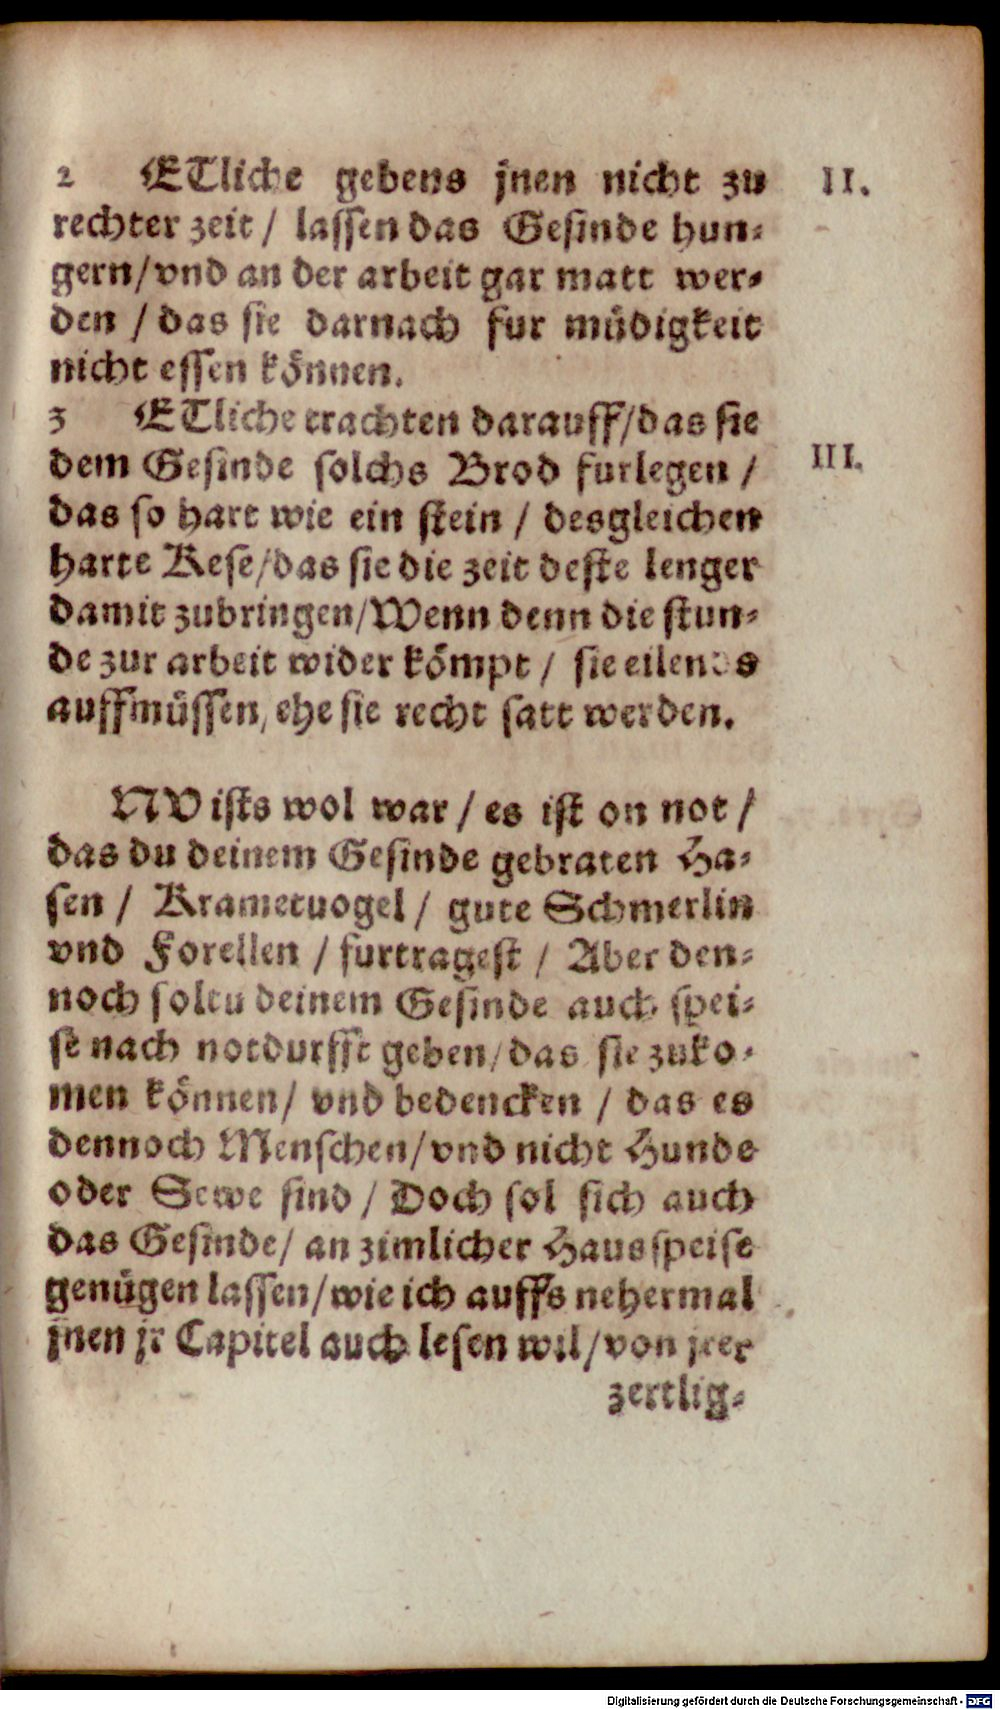 2 ETliche gebens jnen nicht zu II.
rechter zeit / lassen das Gesinde hun-
gern/vnd an der arbeit gar matt wer-
den / das sie darnach fur müdigkeit
nicht essen können.
3 ETliche trachten darauff/das sie
dem Gesinde solchs Brod furlegen / III.
das so hart wie ein stein / desgleichen
harte Kese/das sie die zeit deste lenger
damit zubringen/Wenn denn die stun-
de zur arbeit wider kömpt / sie eilends
auffmüssen, ehe sie recht satt werden.
NV ists wol war / es ist on not /
das du deinem Gesinde gebraten Ha-
sen / Krametuogel / gute Schmerlin
vnd Forellen / furtragest / Aber den-
noch soltu deinem Gesinde auch spei-
se nach notdurfft geben/das sie zuko-
men können/ vnd bedencken / das es
dennoch Menschen/vnd nicht Hunde
oder Sewe sind / Doch sol sich auch
das Gesinde/ an zimlicher Hausspeise
genügen lassen/wie ich auffs nehermal
jnen jr Capitel auch lesen wil/von jrer
zertlig-
Digitalisierung gefördert durch die Deutsche Forschungsgemeinschaft - DFG